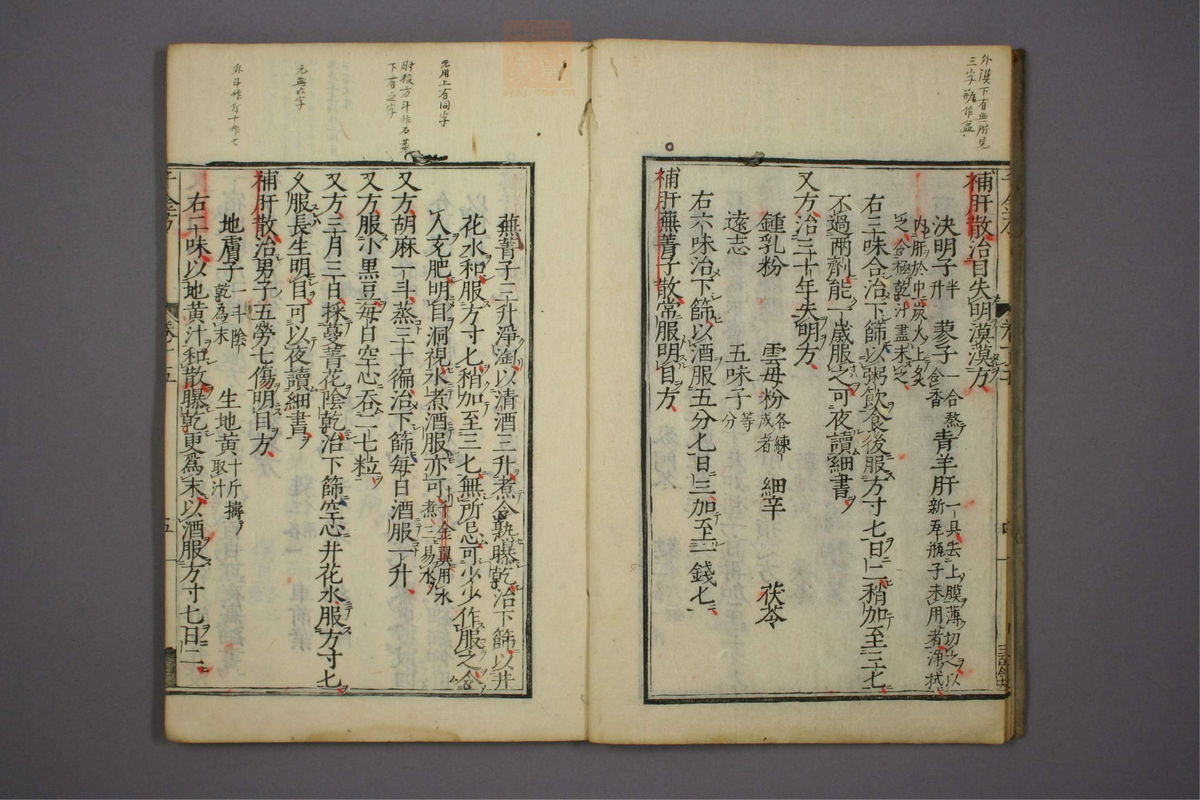 外漠下有無所見
三字
補肝散治目失明漠漠方
決明子半升 蓼子一合熬香 青羊肝一具去上膜薄切之以新瓦瓶子未用者淨拭
内肝於中炭火上炙之令極乾汁盡末之
右三味合治下篩以粥飲食後服方寸七日二稍加至三七
不過兩劑能一歲服之可夜讀細書
又方治三十年失明方
鍾乳粉 雲母粉各練成者 細辛 茯苓
遠志 五味子等分
右六味治下篩以酒服五分七日三加至一錢七
補肝蕪菁子散常服明目方
千金方
卷十五
五
元用上有同字
肘後方斗作石蒸
下有之字
元無以字
外斗作升十作七
蕪菁子三升淨淘以清酒三升煮令熟曝乾治下篩以井
花水和服方寸七稍加至三七無所忌可少少作服之令
人充肥明目洞視水煮酒服亦可千金翼用水煮三易水
又方胡麻一斗蒸三十徧治下篩每日酒服一升
又方服小黑豆每日空心吞二七粒
又方三月三日採蔓菁花陰乾治下篩空心井花水服方寸七
久服長生明目可以夜讀細書
補肝散治男子五勞七傷明目方
地膚子一斗陰乾為末 生地黃十斤擣取汁
右二味以地黃汁和散曝乾更爲末以酒服方寸七日二